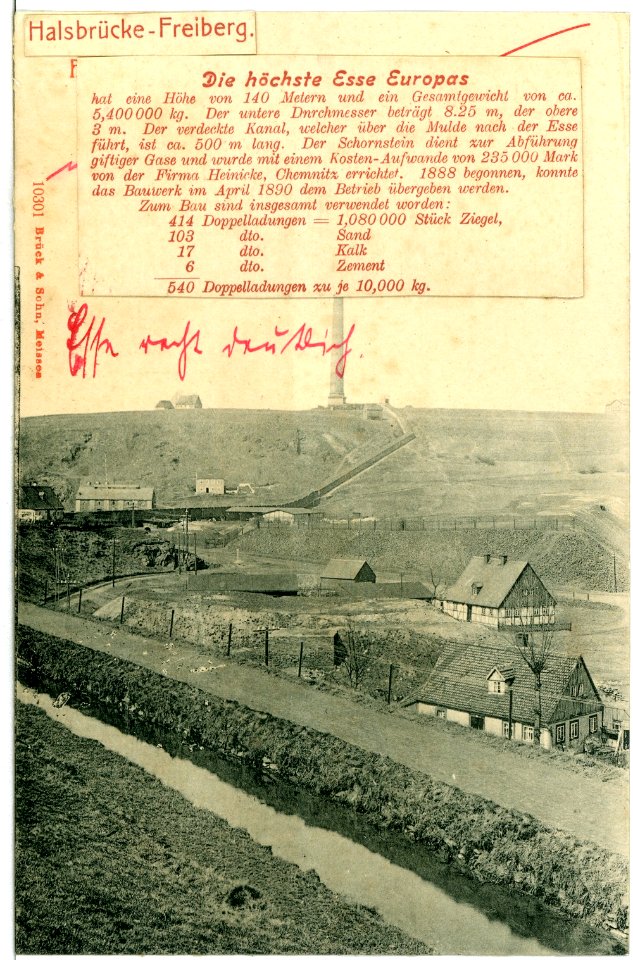 Halsbrücke-Freiberg.
Die höchste Esse Europas
hat eine Höhe von 140 Metern und ein Gesamtgewicht von ca.
5,400000 kg. Der untere Dnrchmesser beträgt 8.25 m, der obere
3 m. Der verdeckte Kanal, welcher über die Mulde nach der Esse
führt, ist ca. 500 m lang. Der Schornstein dient zur Abführung
giftiger Gase und wurde mit einem Kosten-Aufwande von 235000 Mark
von der Firma Heinicke, Chemnitz errichtet. 1888 begonnen, konnte
das Bauwerk im April 1890 dem Betrieb übergeben werden.
Zum Bau sind insgesamt verwendet worden:
414 Doppelladungen = 1,080000 Stück Ziegel,
103 dto. Sand
17 dto. Kalk
6 dto. Zement
540 Doppelladungen zu je 10,000 kg.
10301 Brück & Sohn, Meissen
Esse recht deutlich.